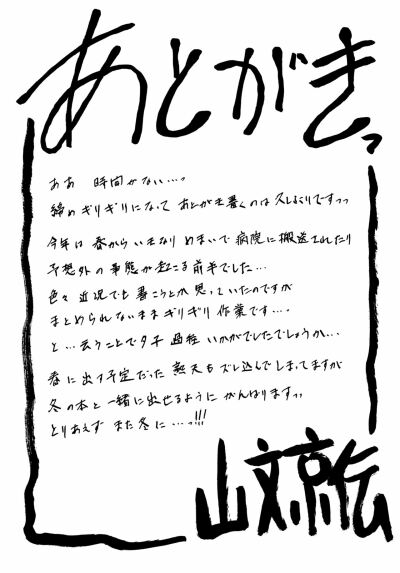 あとがきっ
ああ 時間がない…っ
締めギリギリになって あとがき書くのは久しぶりですっっ
今年は 春から いきなり めまいで 病院に 搬送されたり
予想外の 事態が起こる 前半でした…
色々 近況でも 書こうとか 思っていたのですが
まとめられないまま ギリギリ 作業です…。
と…云うことで夕子 過程 いかがでしたでしょうか…
春に出す予定だった 熟天も ズレ込んでしまってますが
冬の本と 一緒に出せるように がんばりますっっ
とりあえず また冬に…っ!!!
山文京伝